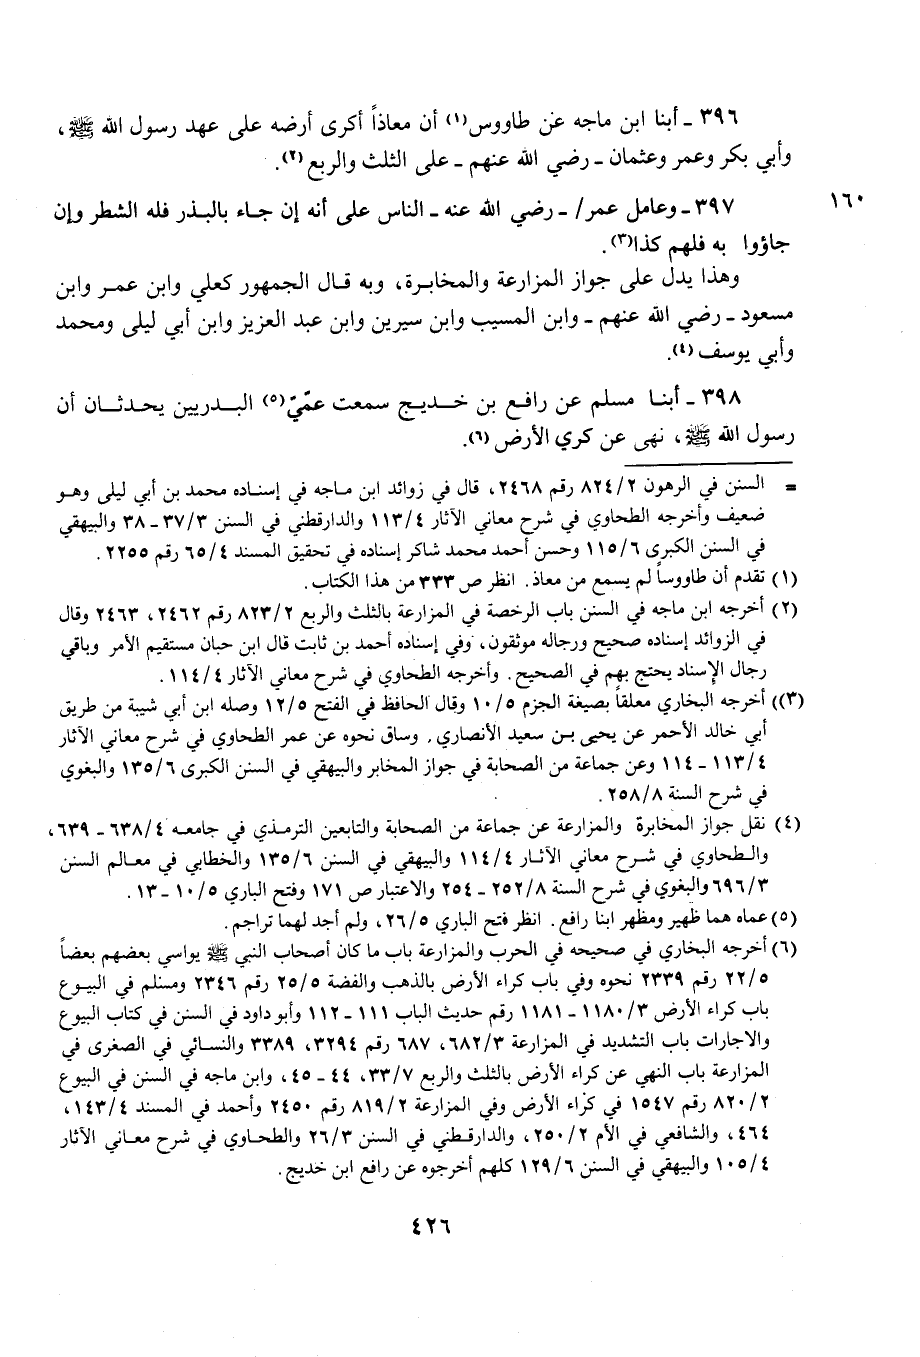 ٣٩٦ - أبنا ابن ماجه عن طاووس(١) أن معاذاً أكرى أرضه على عهد رسول الله ﷺ،
وأبي بكر وعمر وعثمان - رضي الله عنهم - على الثلث والربع(٢).
١٦٠
٣٩٧ - وعامل عمر/ - رضي الله عنه - الناس على أنه إن جاء بالبذر فله الشطر وإن
جاؤوا به فلهم كذا(٣).
وهذا يدل على جواز المزارعة والمخابرة، وبه قال الجمهور كعلي وابن عمر وابن
مسعود - رضي الله عنهم - وابن المسيب وابن سيرين وابن عبد العزيز وابن أبي ليلى ومحمد
وأبي يوسف (٤).
٣٩٨ - أبنا مسلم عن رافع بن خديج سمعت عمّيّ(٥) البدريين يحدثان أن
رسول الله ﷺ، نهى عن كري الأرض(٦).
= السنن في الرهون ٨٢٤/٢ رقم ٢٤٦٨، قال في زوائد ابن ماجه في إسناده محمد بن أبي ليلى وهو
ضعيف وأخرجه الطحاوي في شرح معاني الآثار ١١٣/٤ والدارقطني في السنن ٣٧/٣ - ٣٨ والبيهقي
في السنن الكبرى ١١٥/٦ وحسن أحمد محمد شاكر إسناده في تحقيق المسند ٦٥/٤ رقم ٢٢٥٥.
(١) تقدم أن طاووساً لم يسمع من معاذ. انظر ص ٣٣٣ من هذا الكتاب.
(٢) أخرجه ابن ماجه في السنن باب الرخصة في المزارعة بالثلث والربع ٨٢٣/٢ رقم ٢٤٦٢، ٢٤٦٣ وقال
في الزوائد إسناده صحيح ورجاله موثقون، وفي إسناده أحمد بن ثابت قال ابن حبان مستقيم الأمر وباقي
رجال الإسناد يحتج بهم في الصحيح. وأخرجه الطحاوي في شرح معاني الآثار ١١٤/٤.
(٣)) أخرجه البخاري معلقاً بصيغة الجزم ١٠/٥ وقال الحافظ في الفتح ١٢/٥ وصله ابن أبي شيبة من طريق
أبي خالد الأحمر عن يحيى بن سعيد الأنصاري. وساق نحوه عن عمر الطحاوي في شرح معاني الآثار
١١٣/٤ - ١١٤ وعن جماعة من الصحابة في جواز المخابر والبيهقي في السنن الكبرى ١٣٥/٦ والبغوي
في شرح السنة ٢٥٨/٨.
(٤) نقل جواز المخابرة والمزارعة عن جماعة من الصحابة والتابعين الترمذي في جامعه ٦٣٨/٤ - ٦٣٩،
والطحاوي في شرح معاني الآثار ١١٤/٤ والبيهقي في السنن ١٣٥/٦ والخطابي في معالم السنن
٦٩٦/٣ والبغوي في شرح السنة ٢٥٢/٨ - ٢٥٤ والاعتبار ص ١٧١ وفتح الباري ١٠/٥ - ١٣.
(٥) عماه هما ظهير ومظهر ابنا رافع. انظر فتح الباري ٢٦/٥، ولم أجد لهما تراجم.
(٦) أخرجه البخاري في صحيحه في الحرب والمزارعة باب ما كان أصحاب النبي ﷺ يواسي بعضهم بعضاً
٢٢/٥ رقم ٢٣٣٩ نحوه وفي باب كراء الأرض بالذهب والفضة ٢٥/٥ رقم ٢٣٤٦ ومسلم في البيوع
باب كراء الأرض ١١٨٠/٣ - ١١٨١ رقم حديث الباب ١١١ - ١١٢ وأبو داود في السنن في كتاب البيوع
والاجارات باب التشديد في المزارعة ٦٨٢/٣، ٦٨٧ رقم ٣٢٩٤، ٣٣٨٩ والنسائي في الصغرى في
المزارعة باب النهي عن كراء الأرض بالثلث والربع ٣٣/٧، ٤٤ - ٤٥، وابن ماجه في السنن في البيوع
٨٢٠/٢ رقم ١٥٤٧ في كراء الأرض وفي المزارعة ٨١٩/٢ رقم ٢٤٥٠ وأحمد في المسند ١٤٣/٤،
٤٦٤، والشافعي في الأم ٢٥٠/٢، والدارقطني في السنن ٢٦/٣ والطحاوي في شرح معاني الآثار
١٠٥/٤ والبيهقي في السنن ١٢٩/٦ كلهم أخرجوه عن رافع ابن خديج.
٤٢٦